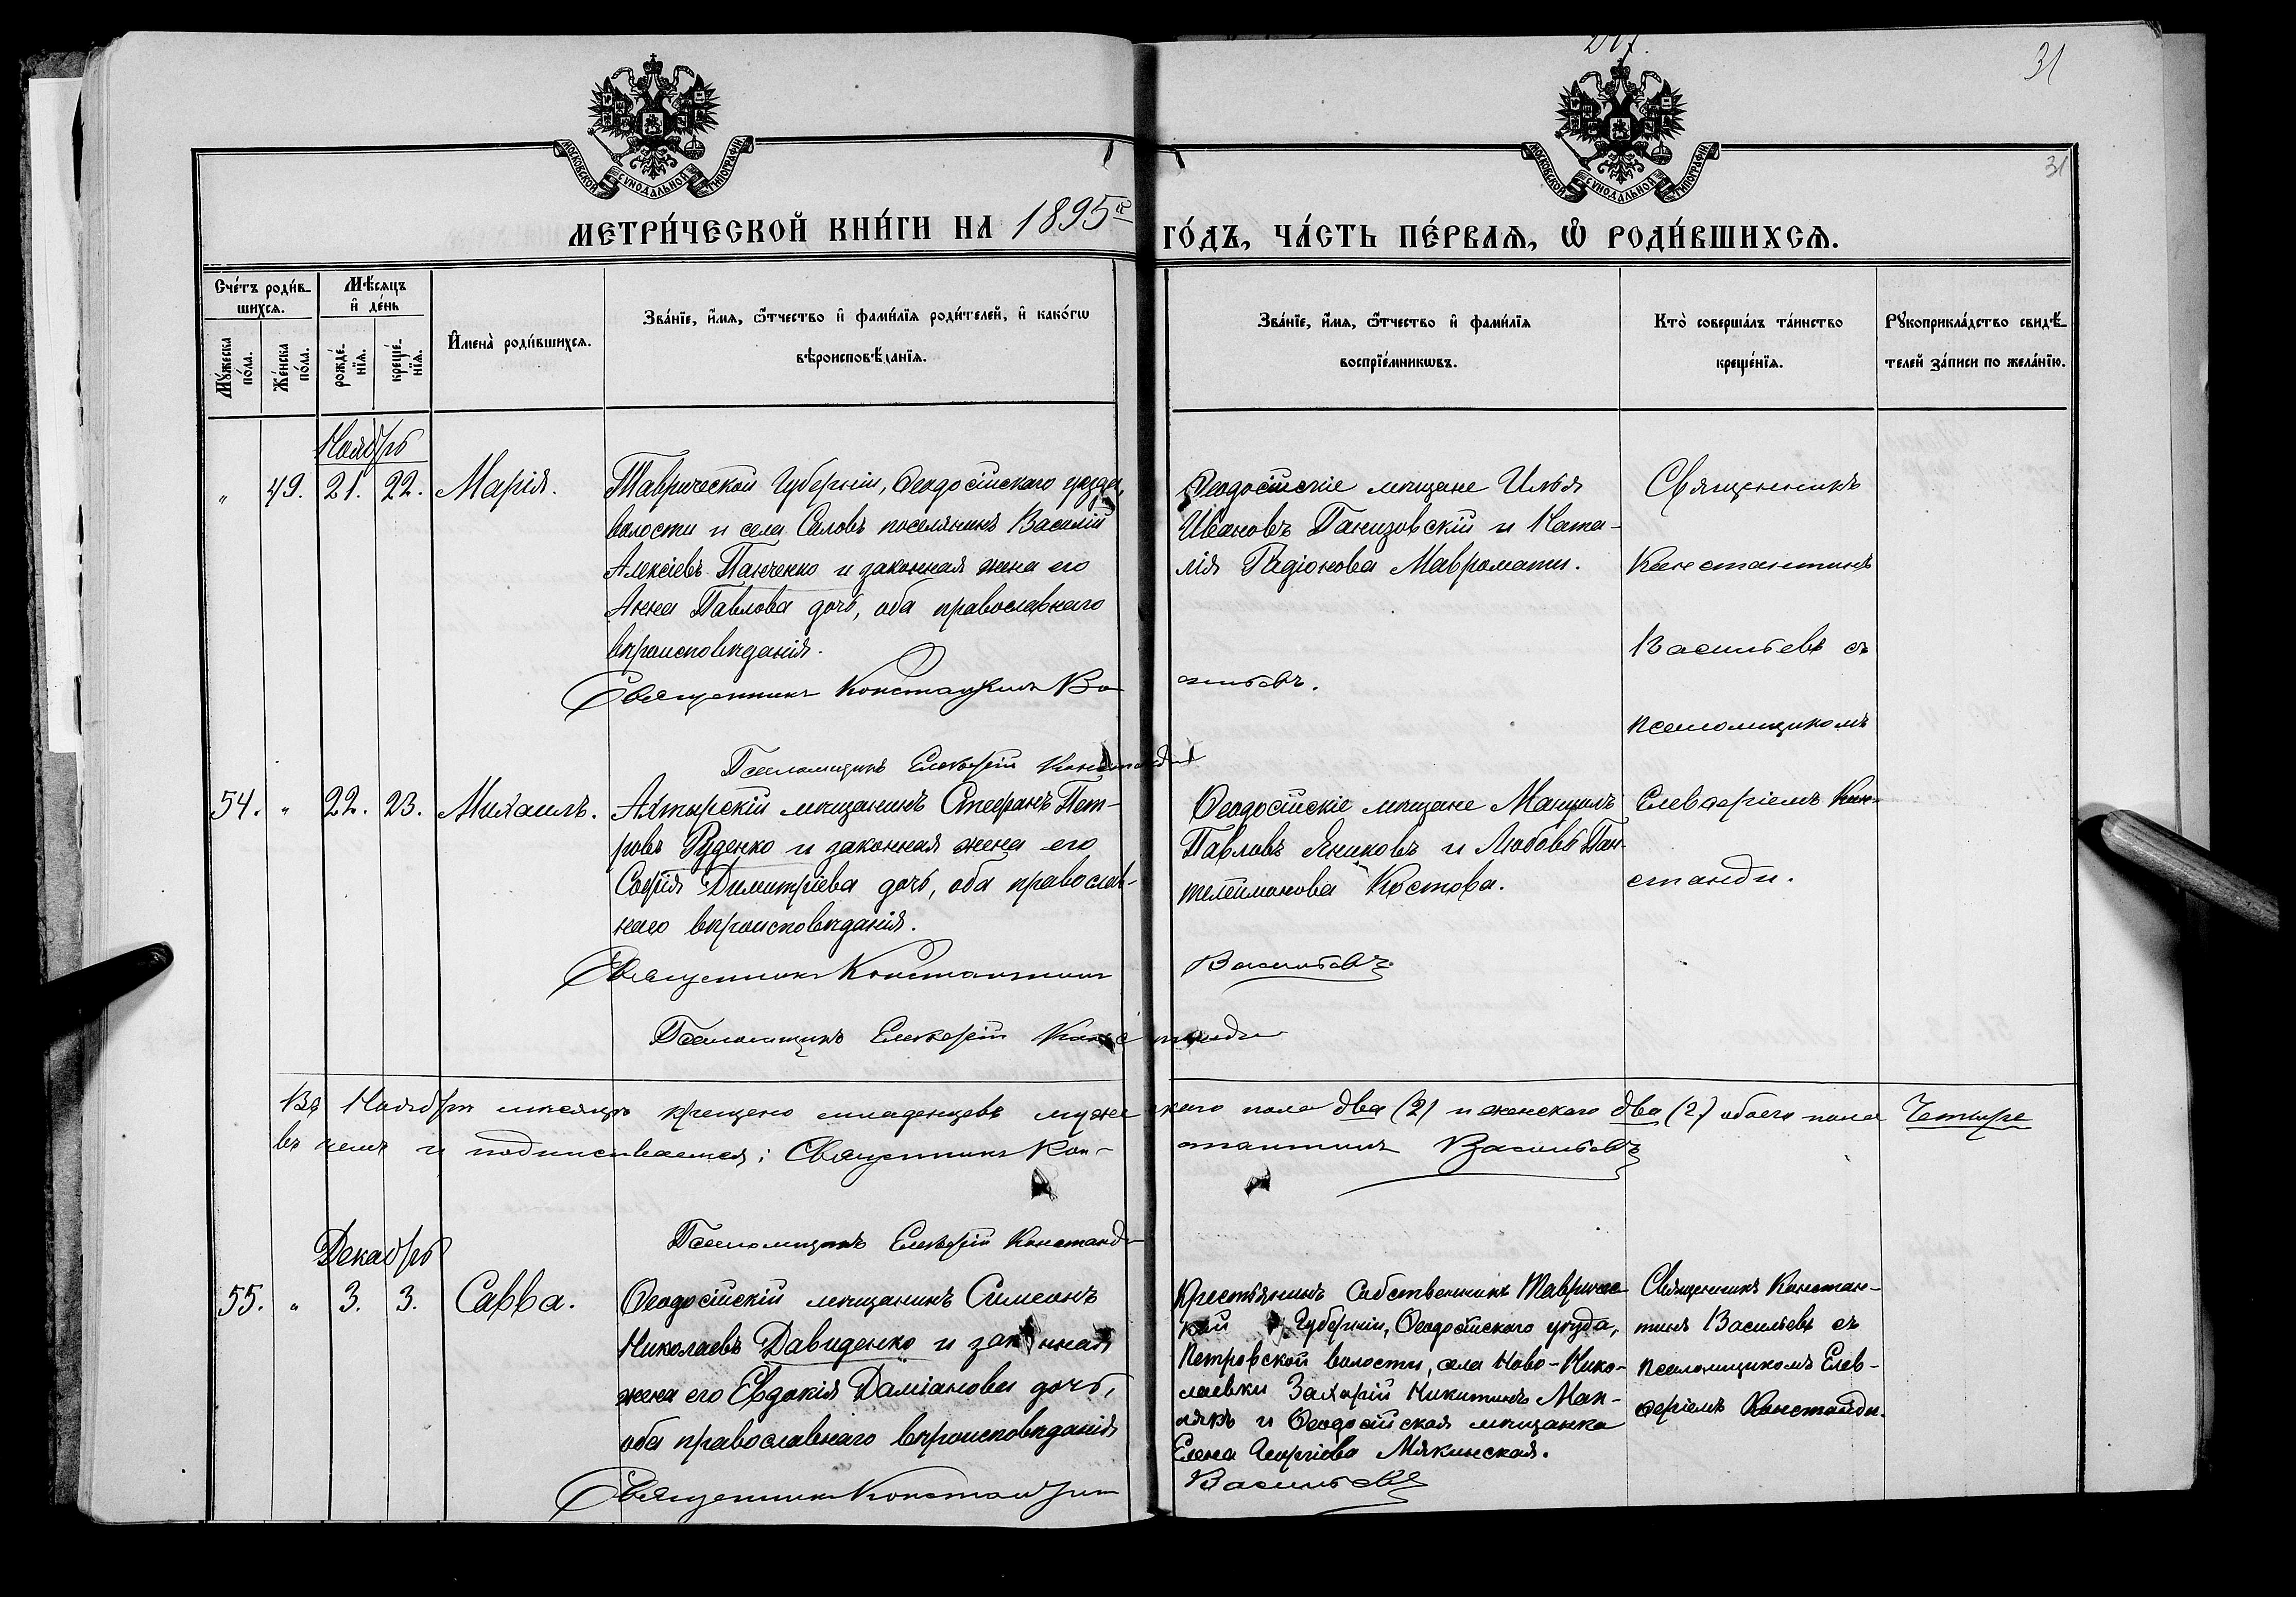 31
31
МОСКОВСКОЙ СѴНОДАЛЬНОЙ ТИПОГРАФІИ
МОСКОВСКОЙ СѴНОДАЛЬНОЙ ТИПОГРАФІИ
МЕТРИ́ЧЕСКОЙ КНИ́ГИ НА 1895й ГО́ДЪ, ЧА́СТЬ ПЕ́РВАѦ, Ѡ҆ РОДИ́ВШИХСѦ.
Сче́тъ роди́в-
шихсѧ.
Мѣ́сѧцъ
и҆ де́нь
Мꙋ́жеска
по́ла.
Же́нска
по́ла.
рожде́-
нїѧ.
креще́-
нїѧ.
И҆мена̀ роди́вшихсѧ.
Зва́нїе, и҆́мѧ, ѻ҆́тчество и҆ фами́лїѧ роди́телей, и҆ како́гѡ
вѣроисповѣ́данїѧ.
Зва́нїе, и҆́мѧ, ѻ҆́тчество и҆ фами́лїѧ
воспрїе́мникѡвъ.
Кто̀ соверша́лъ та́инство
креще́нїѧ.
Рꙋкоприкла́дство свидѣ́-
телей за́писи по жела́нїю.
Ноябрь
" 49. 21. 22. Марія.
Таврической Губерніи, Ѳеодосійскаго уѣзда,
волости и села Саловъ поселянинъ Василій
Алексіевъ Панченко и законная жена его
Анна Павлова дочь, оба православнаго
вѣроисповѣданія.
Священникъ Константинъ Васильевъ.
Псаломщикъ Елевѳерій Констанди
Ѳеодосійскіе мѣщане Илья
Ивановъ Панизовскій и Ната-
лія Радіонова Мавромати.
Священникъ
Константинъ
Васильевъ съ
псаломщикомъ
Елевѳеріемъ Кон-
станди.
54. " 22. 23. Михаилъ.
Ахтырскій мѣщанинъ Стефанъ Пет-
ровъ Руденко и законная жена его
Софія Димитріева дочь, оба православ-
наго вѣроисповѣданія.
Священникъ Константинъ Васильевъ
Псаломщикъ Елевѳерій Констанди
Ѳеодосійскіе мѣщане Мануилъ
Павловъ Яниковъ и Любовь Пан-
телеймонова Костова.
Въ Ноябрѣ мѣсяцѣ крещено младенцевъ мужескаго пола два (2) и женскаго два (2) обоего пола Четыре
въ чемъ и подписываемся: Священникъ Константинъ Васильевъ
Псаломщикъ Елевѳерій Констанди
Декабрь
55. " 3. 3. Савва.
Ѳеодосійскій мѣщанинъ Симеонъ
Николаевъ Давиденко и законная
жена его Евдокія Даміанова дочь,
оба православнаго вѣроисповѣданія
Священникъ Константинъ Васильевъ
Крестьянинъ Собственникъ Тавричес-
кой Губерніи, Ѳеодосійскаго уѣзда,
Петровской волости, села Ново-Нико-
лаевки Захарій Никитинъ Ман-
якъ и Ѳеодосійская мѣщанка
Елена Георгіева Мякинская.
Священникъ Констан-
тинъ Васильевъ съ
псаломщикомъ Елев-
ѳеріемъ Констанди.